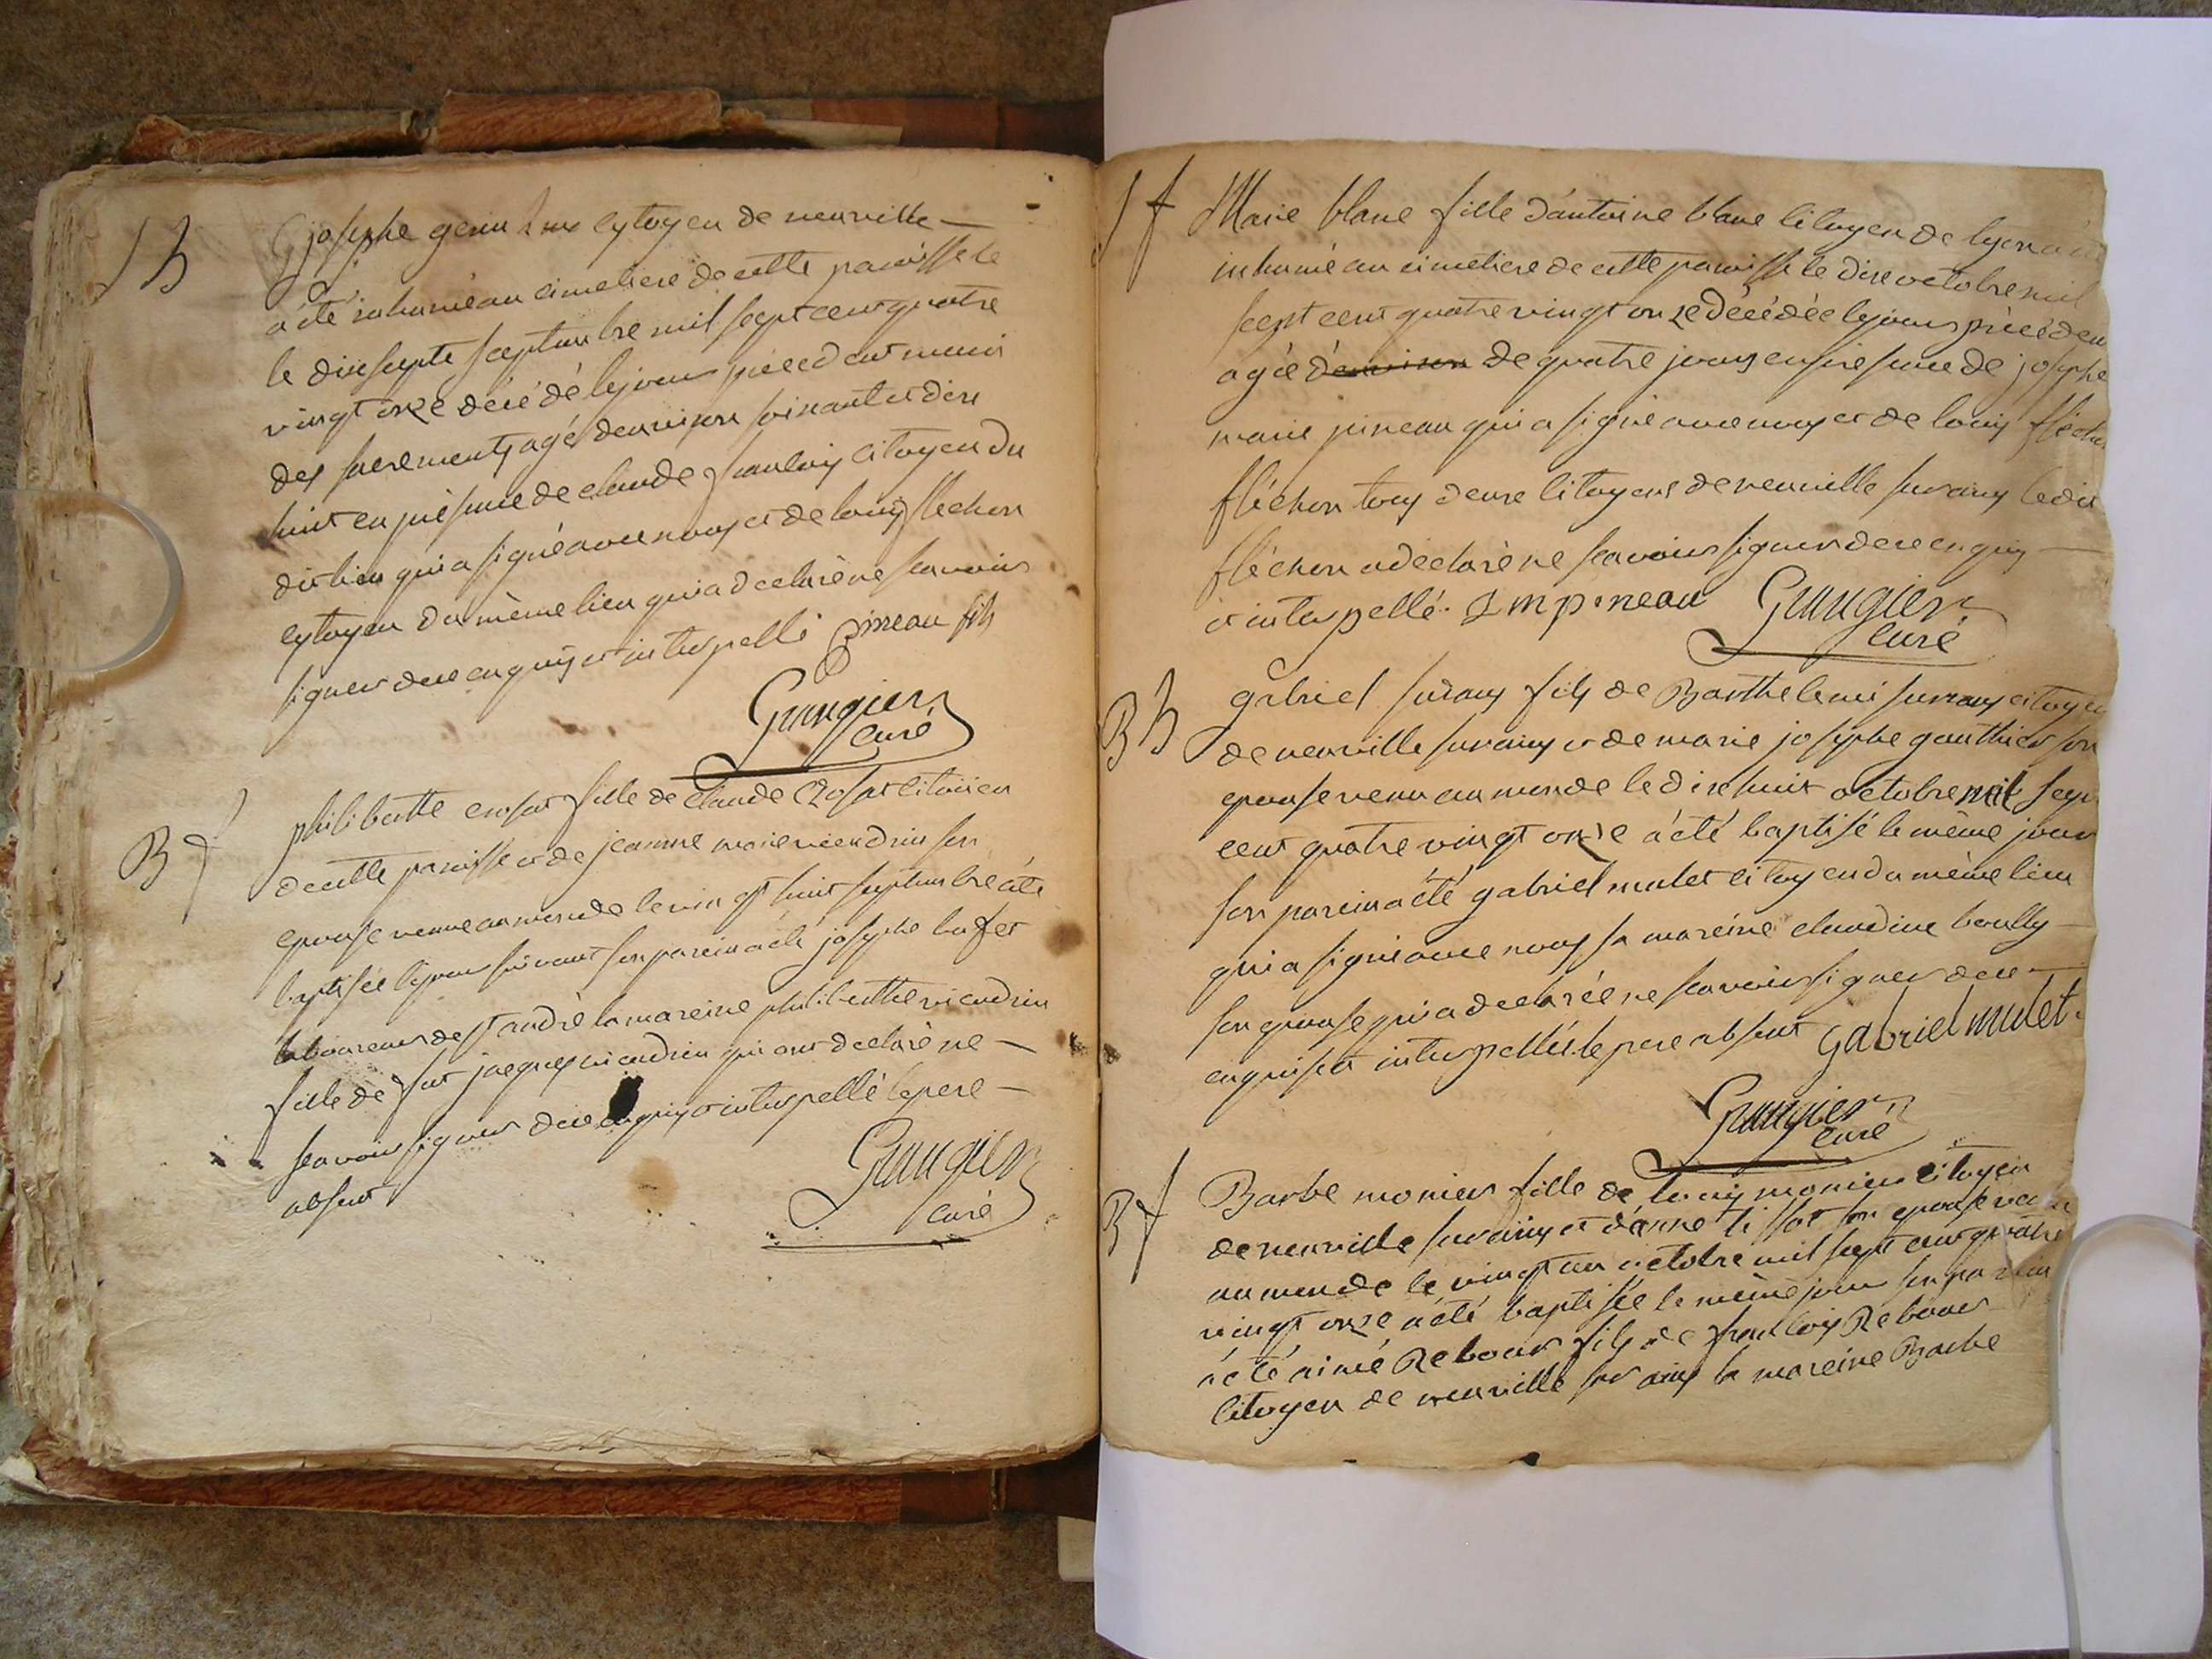 S h
josephe cytoyen de neuville
a été inhumé au cimetiere de cette paroisse le
le dix septe septembre mil sept cent quatre
vingt onze décédé le jour précédent muni
des sacrements agé denviron soixante et dix
huit en présence de claude francois citoyen du
dit lieu qui a signé avec nous et de louis fléchon
cytoyen du même lieu qui a declaré ne scavoir
signer de ce enquis et interpellé pineau fils
curé
B f
philiberte crosat fille de claude Crosat citoien
de cette paroisse et de jeanne marie viendrin son
epouse venue au monde le vingt huit septembre a été
baptisée le jour suivant son parein a été josephe bufet
laboureur de st andré la mareine philiberthe viendrin
fille de fut jacques viendrin qui ont declaré ne
scavoir signer de ce enquis et interpellé le pere
absent
curé
S f
Marie blanc fille d'antoine blanc citoyen de lyon a été
inhumé au cimetiere de cette paroisse le dixe octobre mil
sept cent quatre vingt onze décédée le jour précéden
agée denviron de quatre jours en présence de josephe
marie pineau qui a signé avec nous et de louis fléchon
fléchon tous deux citoyens de neuville sur ains le dit
fléchon a declaré ne scavoir signer de ce enquis
et interpellé. J m pineau
curé
B h
gabriel suran fils de Barthelemi suran citoyen
de neuville sur ains et de marie josephe gauthier son
epouse venu au monde le dix huit octobre mil sept
cent quatre vingt onze a été baptisé le même jour
son parein a été gabriel mulet citoyen du même lieu
qui a signé avec nous sa mareine claudine boully
son epouse qui a declarée ne scavoir signer de ce
enquise et interpellés le pere absent Gabriel mulet
curé
B f
Barbe monier fille de louis monier citoyen
de neuville sur ains et d'anne tissot son epouse venue
au monde le vingt un octobre mil sept cent quatre
vingt onze a été baptisée le même jour son parein
a été aimé Rebour fils de francois Rebour
citoyen de neuville sur ains la mareine Barbe